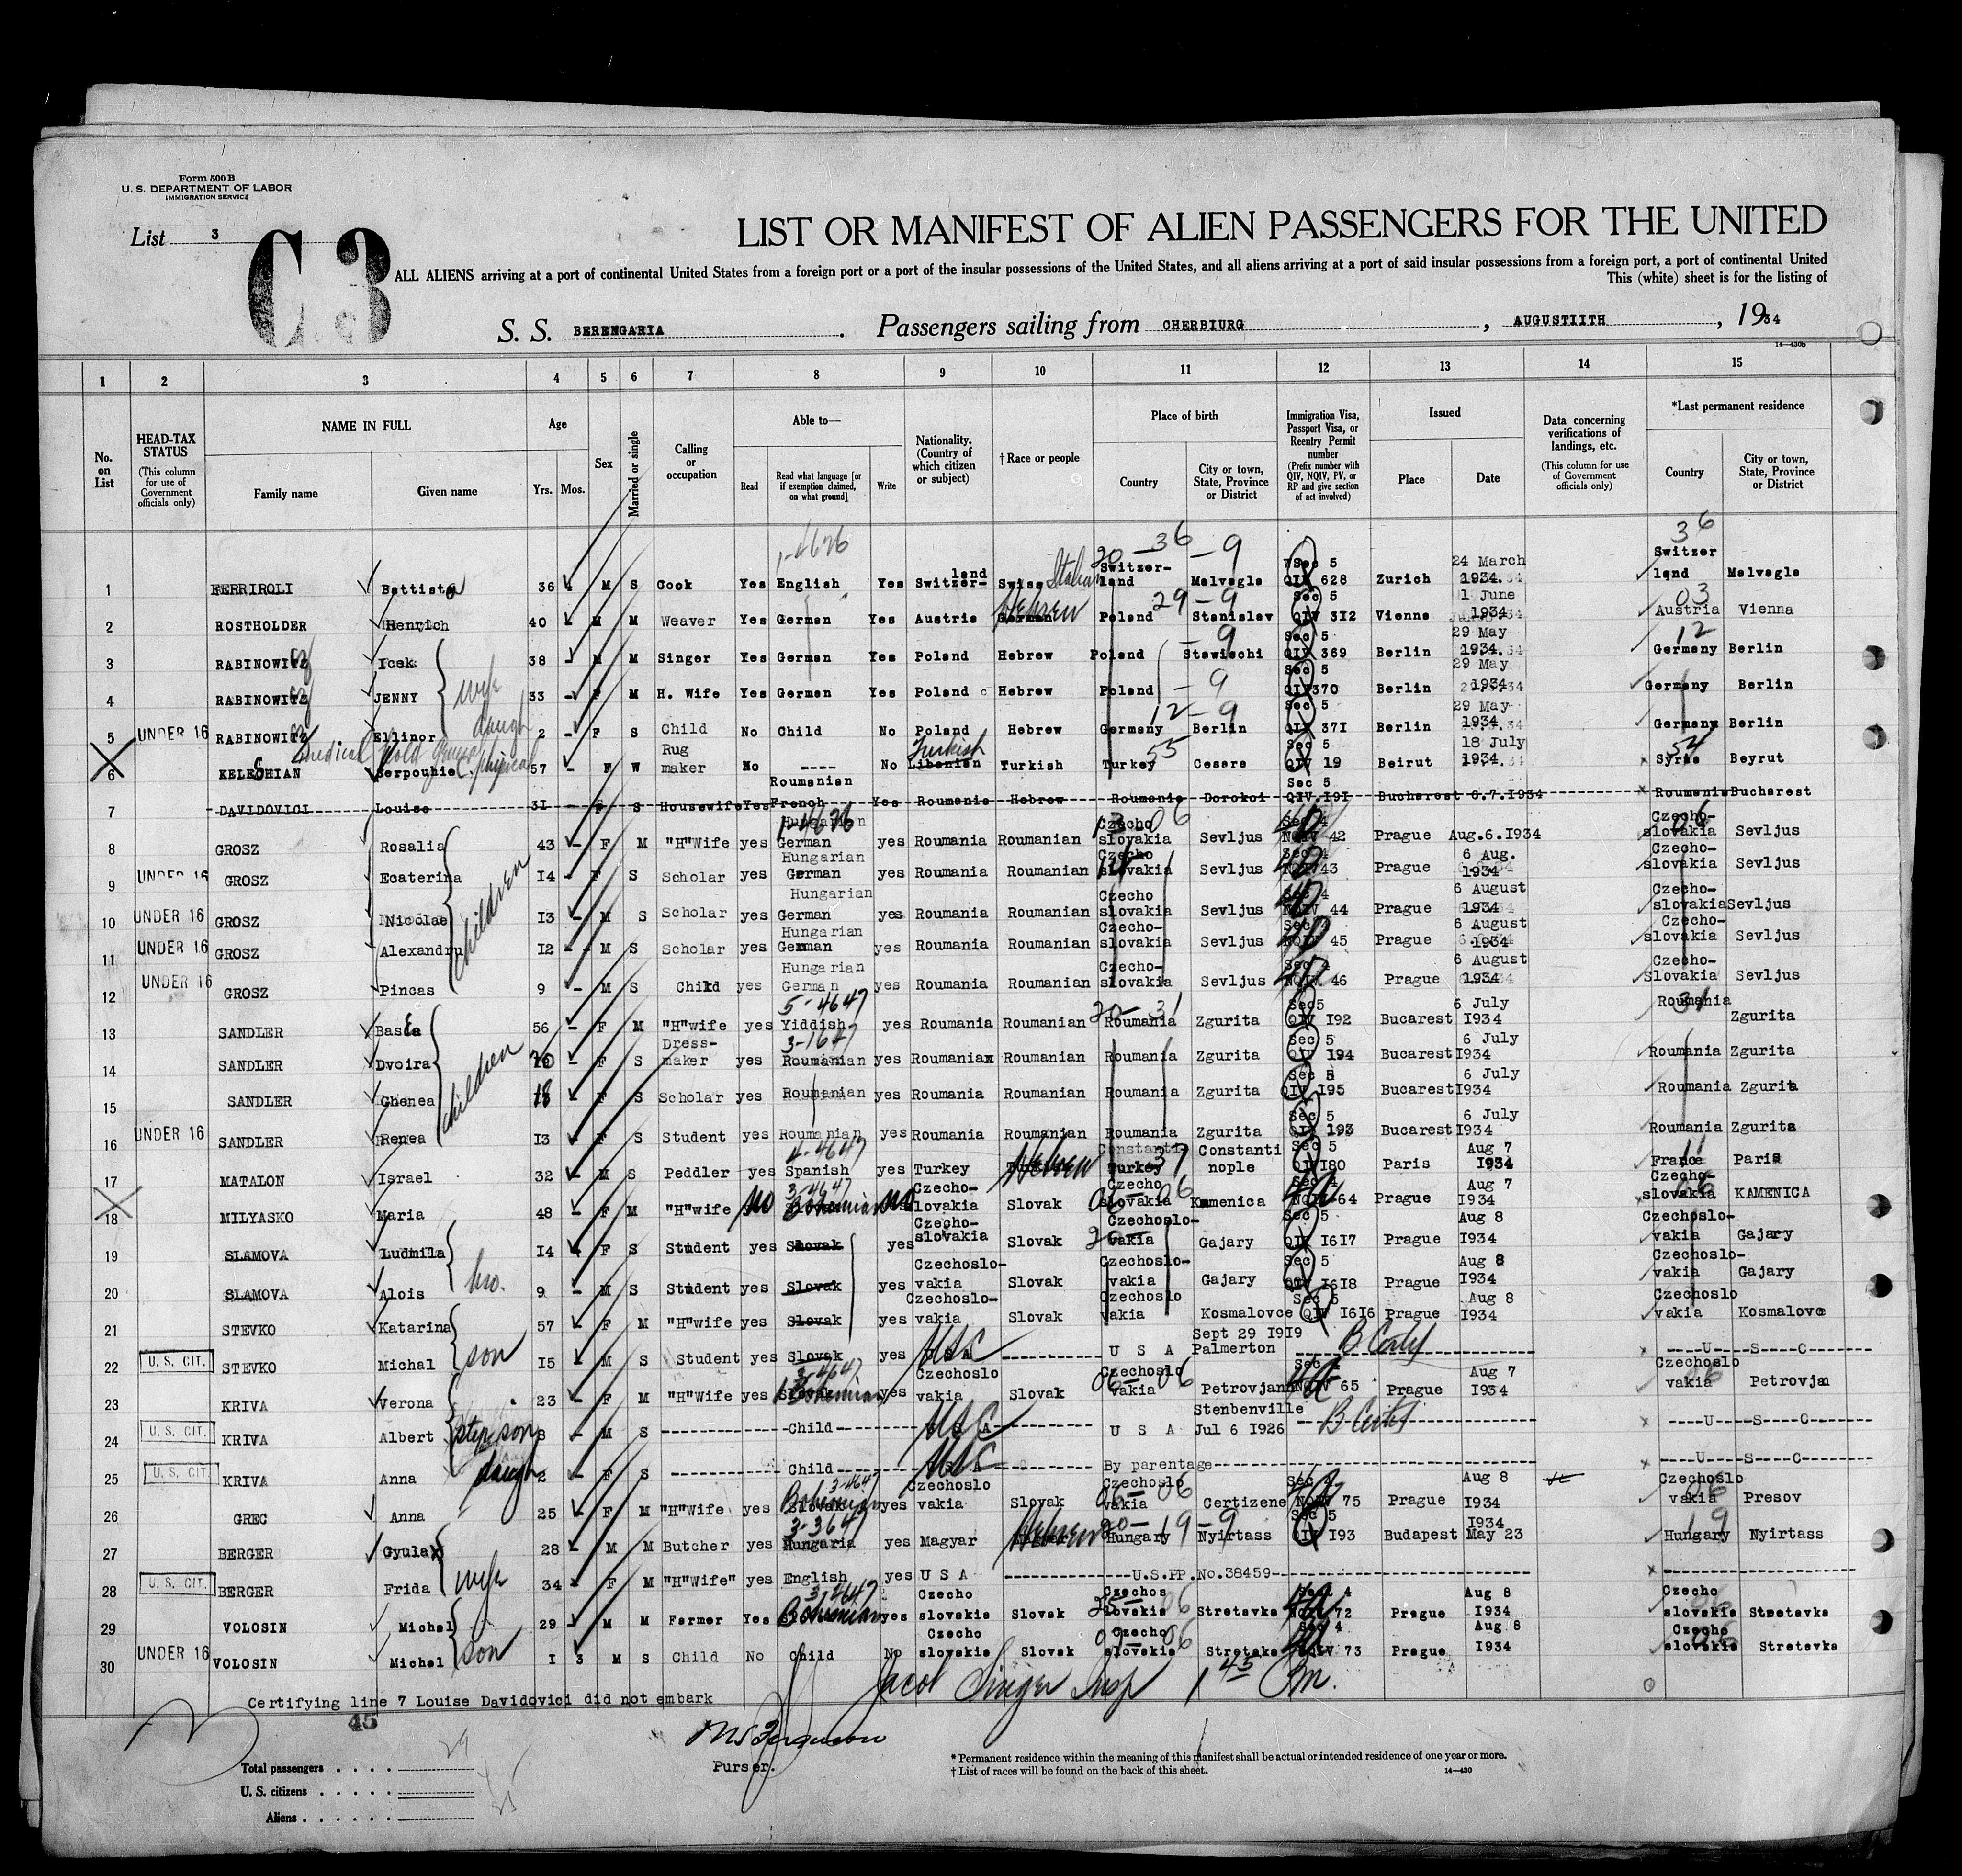 Form 500 B
U. S. DEPARTMENT OF LABOR
IMMIGRATION SERVICE
List 3
C3
LIST OR MANIFEST OF ALIEN PASSENGERS FOR THE UNITED
ALL ALIENS arriving at a port of continental United States from a foreign port or a port of the insular possessions of the United States, and all aliens arriving at a port of said insular possessions from a foreign port, a port of continental United
This (white) sheet is for the listing of
S. S. BERENGARIA. Passengers sailing from CHERBIURG, AUGUSTIITH, 1934
14—430B
1 2 3 4 5 6 7 8 9 10 11 12 13 14 15
No. on List
HEAD-TAX STATUS (This column for use of Government officials only)
NAME IN FULL Family name Given name
Age Yrs. Mos.
Sex
Married or single
Calling or occupation
Able to— Read Read what language [or if exemption claimed, on what ground] Write
Nationality. (Country of which citizen or subject)
†Race or people
Place of birth Country City or town, State, Province or District
Immigration Visa, Passport Visa, or Reentry Permit number (Prefix number with QIV, NQIV, PV, or RP and give section of act involved)
Issued Place Date
Data concerning verifications of landings, etc. (This column for use of Government officials only)
*Last permanent residence Country City or town, State, Province or District
1 FERRIROLI Battista 36 M S Cook Yes English Yes Switzer-land Swiss Italian Switzer-land Melvagle Sec 5 QIV 628 Zurich 24 March 1934 Switzer land Melvagle
2 ROSTHOLDER Henrich 40 - M M Weaver Yes German Yes Austria German Hebrew Poland Stanislav Sec 5 QIV 312 Vienna 1 June 1934 Austria Vienna
3 RABINOWITZ Icek 38 - M M Singer Yes German Yes Poland Hebrew Poland Stawischi Sec 5 QIV 369 Berlin 29 May 1934 Germany Berlin
4 RABINOWITZ JENNY wife 33 - F M H. Wife Yes German Yes Poland Hebrew Poland Sec 5 QIV370 Berlin 29 May 1934 Germany Berlin
5 UNDER 16 RABINOWITZ Ellinor daugh 2 - F S Child No Child No Poland Hebrew Germany Berlin Sec 5 QIV 37I Berlin 29 May 1934 Germany Berlin
medical hold physical
6 KELESHIAN Serpouhie 57 - F W Rug maker No ---- No Libanian Turkish Turkish Turkey Cesare Sec 5 QIV 19 Beirut 18 July 1934 Syria Beyrut
7 DAVIDOVICI Louise 3I - F S Housewife Yes Roumanian French Yes Roumania Hebrew Roumania Dorokoi Sec 5 QIV.I9I Bucharest 6.7.1934 Roumania Bucharest
8 GROSZ Rosalia 43 - F M "H"Wife yes Hungarian German yes Roumania Roumanian Czecho slovakia Sevljus Sec 4 NQIV 42 Prague Aug.6.I934 Czecho-slovakia Sevljus
9 UNDER 16 GROSZ Ecaterina I4 - F S Scholar yes Hungarian German yes Roumania Roumanian Czecho slovakia Sevljus Sec 4 43 Prague 6 Aug. 1934 Czecho-slovakia Sevljus
10 UNDER 16 GROSZ Nicolae children I3 - M S Scholar yes Hungarian German yes Roumania Roumanian Czecho slovakia Sevljus Sec 4 NQIV 44 Prague 6 August 1934 Czecho-slovakia Sevljus
11 UNDER 16 GROSZ Alexandru I2 - M S Scholar yes Hungarian German yes Roumania Roumanian Czecho-slovakia Sevljus Sec 4 45 Prague 6 August 1934 Czecho-slovakia Sevljus
12 UNDER 16 GROSZ Pincas 9 - M S Child yes Hungarian German yes Roumania Roumanian Czecho-slovakia Sevljus Sec 4 NQIV 46 Prague 6 August 1934 Czecho-Slovakia Sevljus
13 SANDLER Basea 56 - F M "H"wife yes Yiddish yes Roumania Roumanian Roumania Zgurita Sec5 QIV I92 Bucarest 6 July I934 Roumania Zgurita
14 SANDLER Dvoira - F S Dress-maker yes Roumanian yes Roumanian Roumanian Roumania Zgurita Sec 5 QIV 194 Bucarest 6 July I934 Roumania Zgurita
15 SANDLER Ghenea children 18 - F S Scholar yes Roumanian yes Roumania Roumanian Roumania Zgurita Sec 5 QIV I95 Bucarest 6 July I934 Roumania Zgurita
16 UNDER 16 SANDLER Renea I3 F S Student yes Roumanian yes Roumania Roumanian Roumania Zgurita Sec 5 QIV 193 Bucarest 6 July I934 Roumania Zgurita
17 MATALON Israel 32 - M S Peddler yes Spanish yes Turkey Hebrew Turkey Constanti nople Sec 5 QIVI80 Paris Aug 7 I934 France Paris
18 MILYASKO Maria 48 - F M "H"wife No Bohemian No Czecho-slovakia Slovak Czecho slovakia Kamenica Sec 4 NQIV 64 Prague Aug 7 I934 Czecho-slovakia KAMENICA
19 SLAMOVA Ludmila I4 F S Student yes Slovak yes Czecho-slovakia Slovak Czechoslo-vakia Gajary Sec 5 QIV I6I7 Prague Aug 8 I934 Czechoslo-vakia Gajary
20 SLAMOVA Alois bro. 9 - M S Student yes Slovak yes Czechoslo-vakia Slovak Czechoslo-vakia Gajary Sec 5 QIV I6I8 Prague Aug 8 I934 Czechoslo-vakia Gajary
21 STEVKO Katarina 57 - F M "H"wife yes Slovak yes Czechoslo-vakia Slovak Czechoslo vakia Kosmalovce Sec 5 QIV I6I6 Prague Aug 8 I934 Czechoslo vakia Kosmalovce
22 U. S. CIT. STEVKO Michal son I5 - M S Student yes Slovak yes USC U S A Sept 29 I9I9 Palmerton ----U---S---C---
23 KRIVA Verona 23 - F M "H"Wife yes Slovak Bohemian yes Czechoslo vakia Slovak Czechoslo vakia Petrovjann Sec 4 NQIV 65 Prague Aug 7 I934 Czechoslo vakia Petrovja
24 U. S. CIT. KRIVA Albert step son 8 - M S Child USC U S A Stenbenville Jul 6 I926 ----U---S---C---
25 U. S. CIT. KRIVA Anna daugh 2 - F S Child USC By parentage ----U---S---C---
26 GREC Anna 25 - F M "H"Wife yes Slovak Bohemian yes Czechoslo vakia Slovak Czechoslo vakia Certizene Sec 4 NQIV 75 Prague Aug 8 I934 Czechoslo vakia Presov
27 BERGER Gyula 28 - M M Butcher yes Hungaria yes Magyar Hebrew Hungary Nyirtass Sec 5 QIV I93 Budapest I934 May 23 Hungary Nyirtass
28 U. S. CIT. BERGER Frida wife 34 F M "H"Wife" yes English yes U S A U.S.PP.No.38459
29 VOLOSIN Michal 29 - M M Farmer Yes Bohemian yes Czecho slovakia Slovak Czechos lovakia Stretavka Sec 4 NQIV 72 Prague Aug 8 I934 Czecho slovakia Stretavka
30 UNDER 16 VOLOSIN Michal son I 3 M S Child No Child No Czecho slovakia Slovak Czecho slovakia Stretavka Sec 4 NQIV 73 Prague Aug 8 I934 Czecho slovakia Stretavka
Jacob Singer Insp 1 45 Pm.
Certifying line 7 Louise Davidovici did not embark
45
Purser.
Total passengers . . . . 29
U. S. citizens . . . . . 4
Aliens . . . . . . 25
* Permanent residence within the meaning of this manifest shall be actual or intended residence of one year or more.
† List of races will be found on the back of this sheet.
14—430